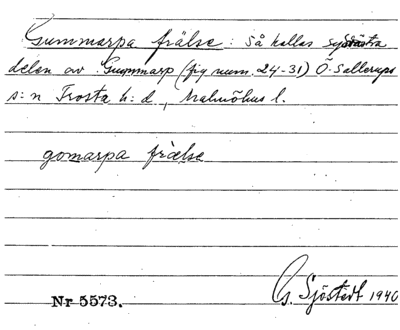 Gummarpa frälse: så kallas sydöstra
delen av Gummarp (fig num. 24-31) Ö. Sallerups
s:n Frosta h:d., Malmöhus l.
gomarpa frælse
Nr 5573.
G. Sjöstedt 1940